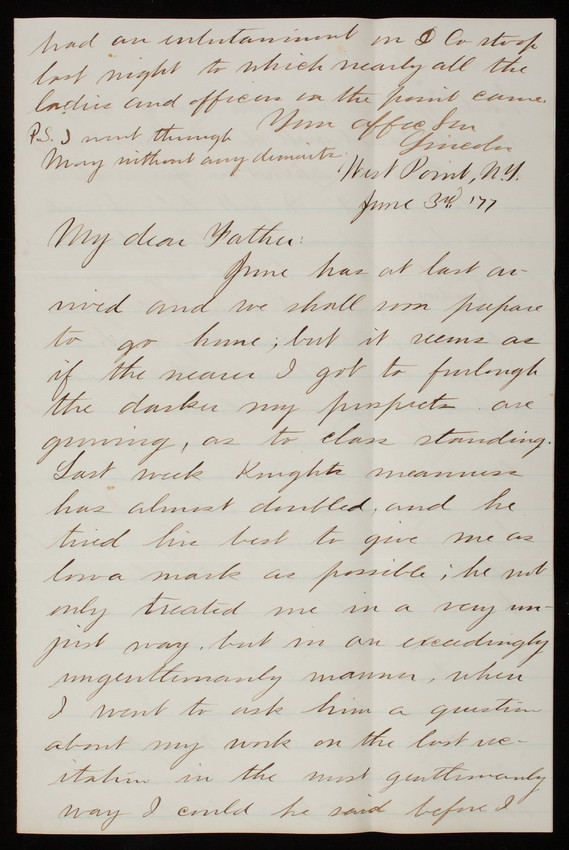 had an entertainment on D Co stoop
last night to which nearly all the
ladies and officers on the point came.
Your affec Son
Lincoln
P.S. I went through
May without any demerits.
West Point, N.Y.
June 3rd '77
My dear Father:
June has at last ar-
rived and we shall soon prepare
to go home; but it seems as
if the nearer I got to furlough
the darker my prospects are
growing, as to class standing.
Last week Knights meanness
has almost doubled, and he
tried his best to give me as
low a mark as possible; he not
only treated me in a very un-
just way, but in an exceedingly
ungentlemanly manner, when
I went to ask him a question
about my work on the last rec-
itation in the most gentlemanly
way I could he said before I